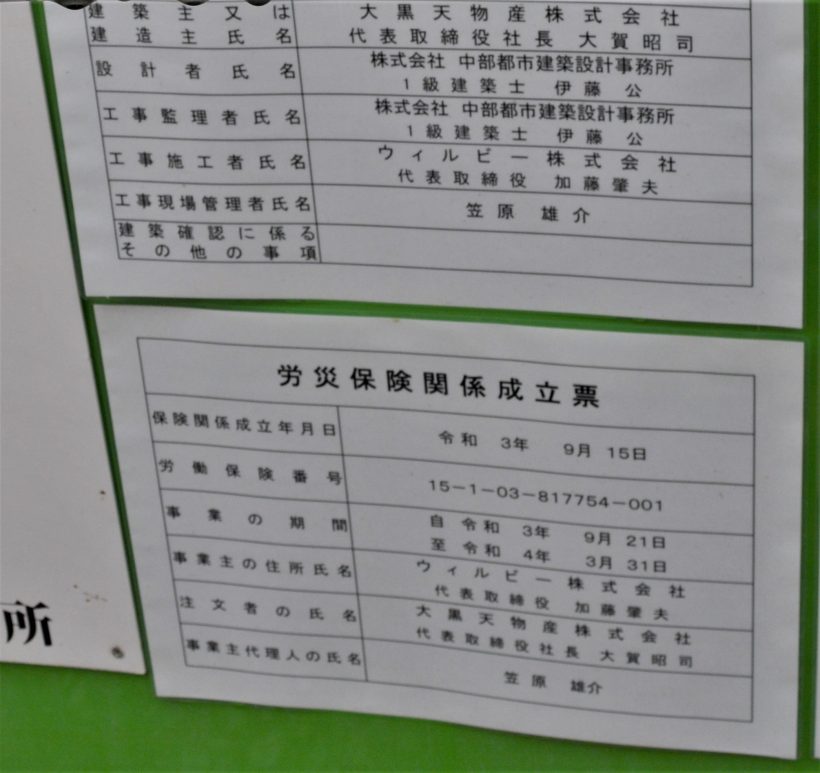 建築主又は
建造主氏名
大黒天物産株式会社
代表取締役社長 大賀昭司
設計者氏名
株式会社 中部都市建築設計事務所
1級建築士 伊藤 公
工事監理者氏名
株式会社 中部都市建築設計事務所
1級建築士 伊藤 公
工事施工者氏名
ウィルビー株式会社
代表取締役 加藤肇夫
工事現場管理者氏名
笠原 雄介
建築確認に係る
その他の事項
労災保険関係成立票
保険関係成立年月日
令和 3年 9月 15日
労働保険番号
15-1-03-817754-001
事業の期間
自 令和 3年 9月 21日
至 令和 4年 3月 31日
事業主の住所氏名
ウィルビー株式会社
代表取締役 加藤肇夫
注文者の氏名
大黒天物産株式会社
代表取締役社長 大賀昭司
事業主代理人の氏名
笠原 雄介
所